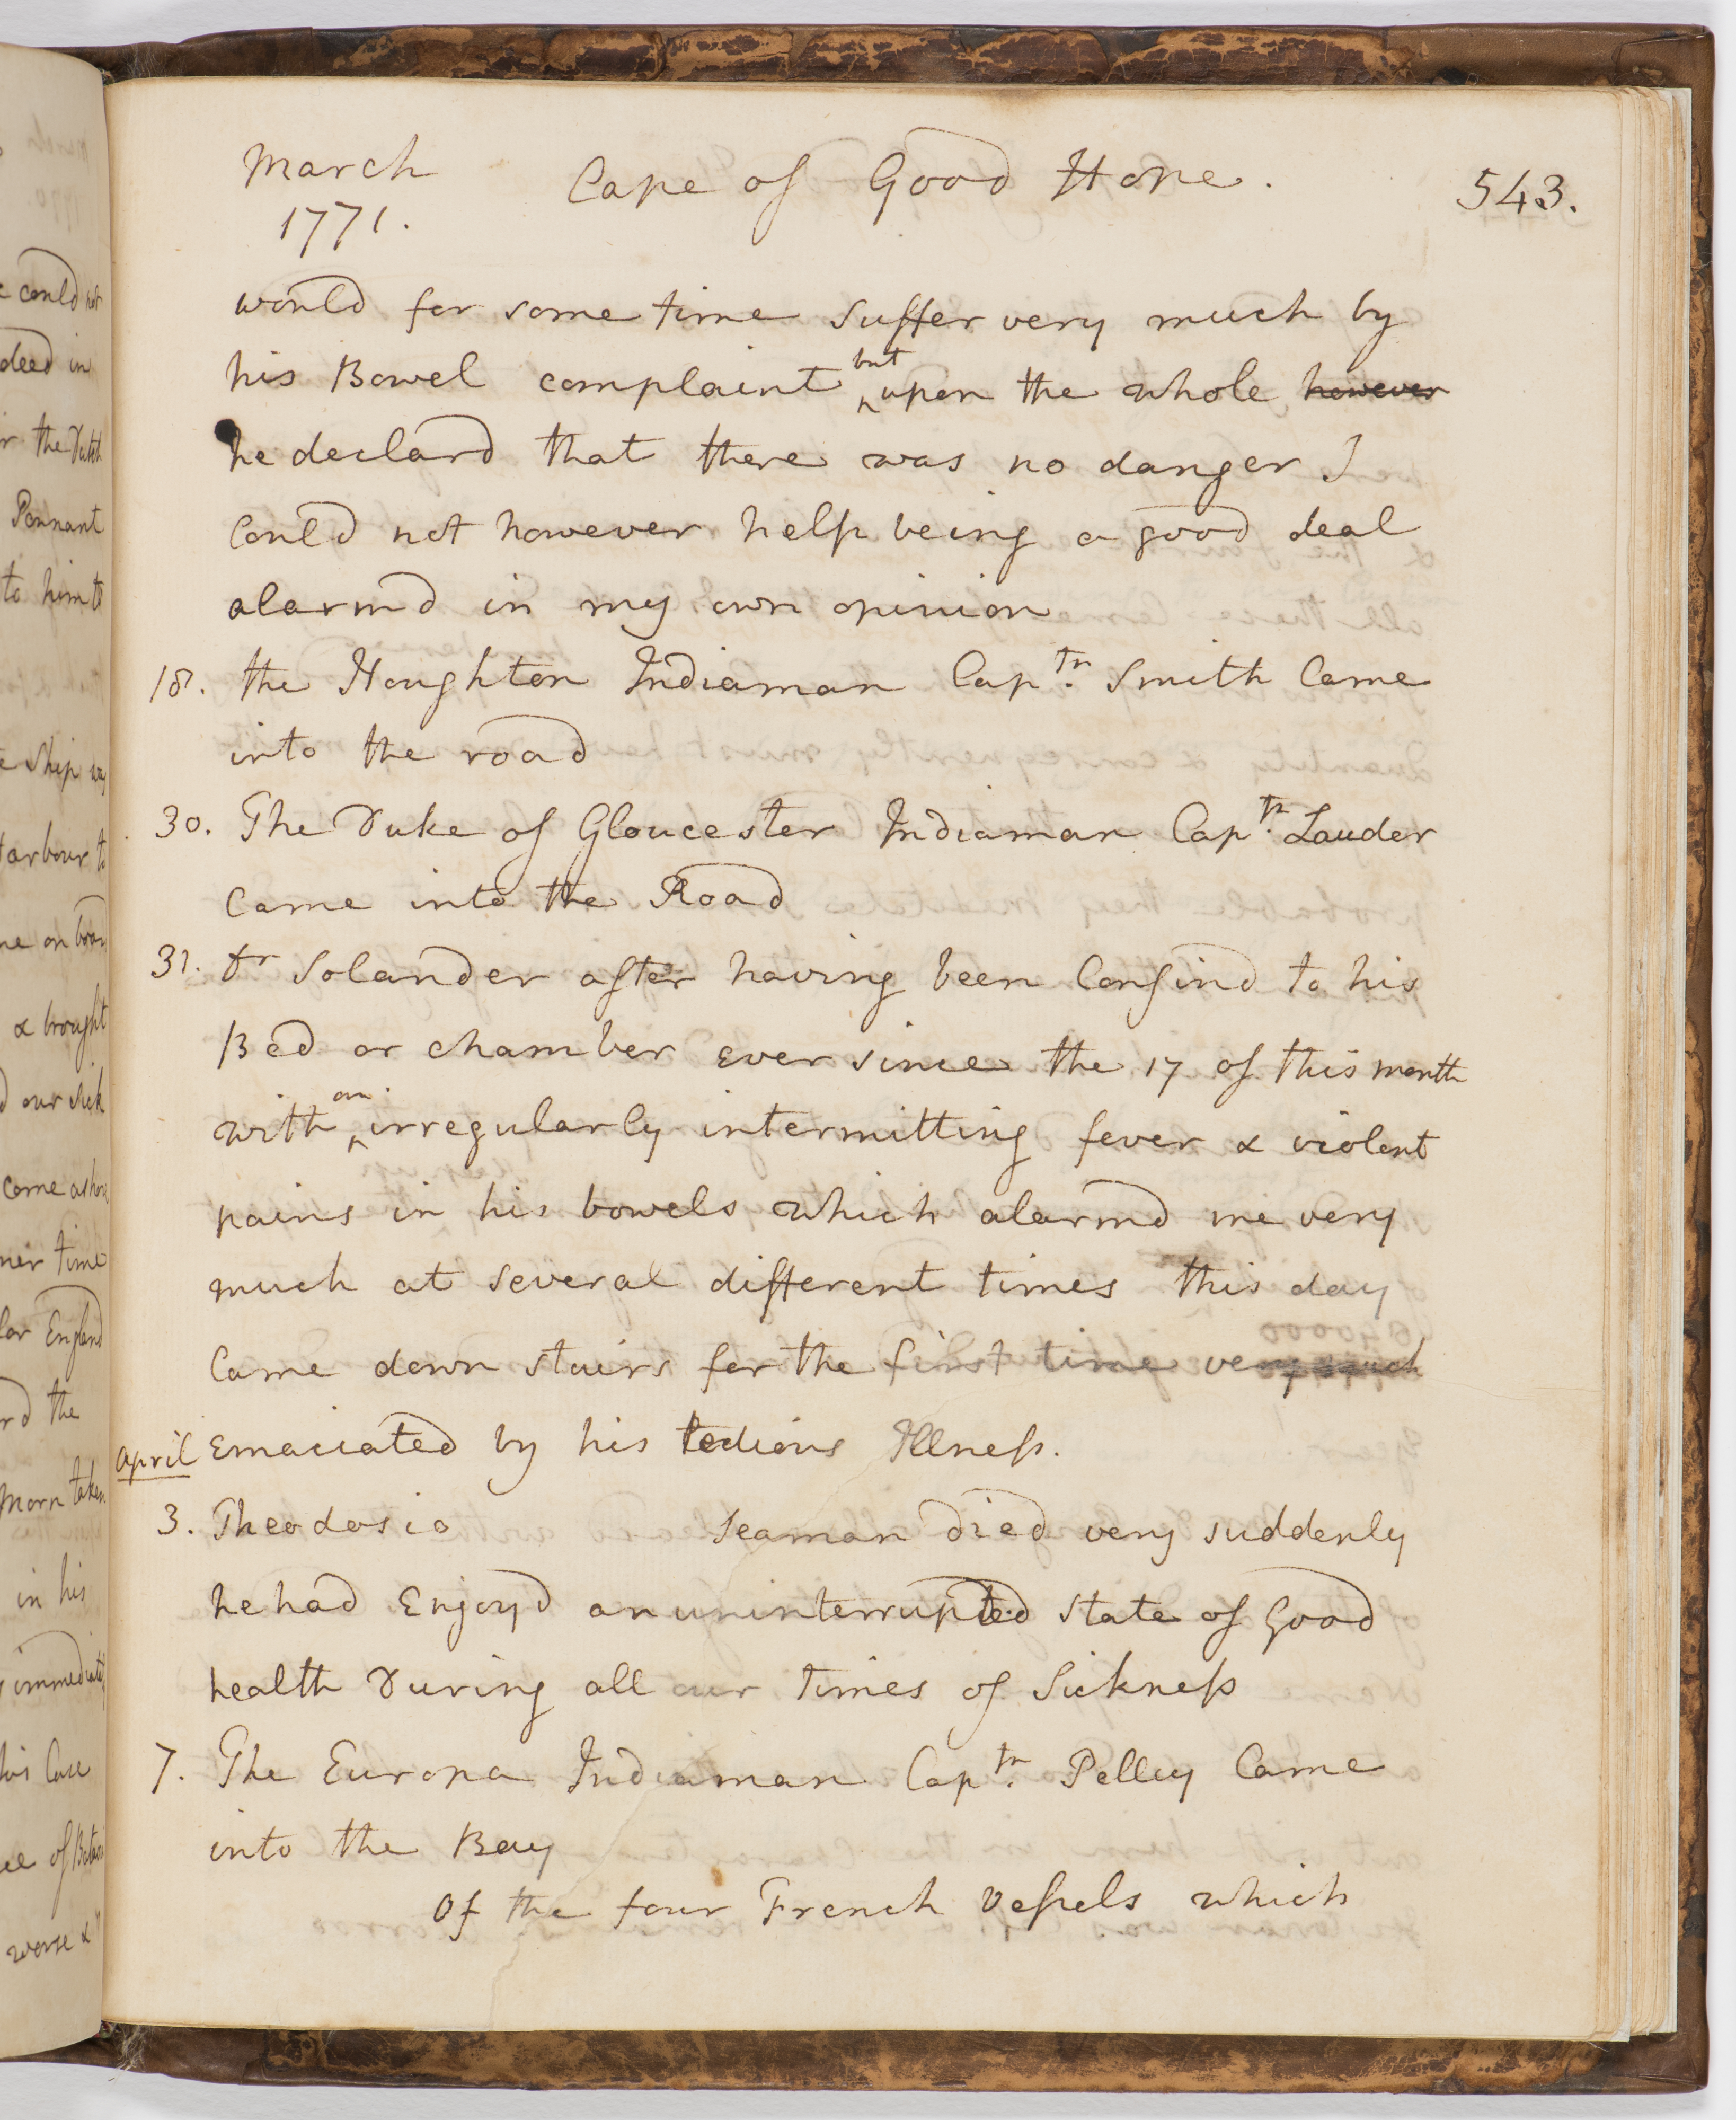 March Cape of Good Hope. 543.
1771.
would for some time suffer very much by
his Bowel complaint but upon the whole however
he declard that there was no danger I
Could not however help being a good deal
alarmd in my own opinion
18. the Houghton Indiaman Captn. Smith Came
into the road
30. The Duke of Gloucester Indiaman Captn. Lauder
Came into the Road
31. Dr Solander after having been Confind to his
Bed or chamber ever since the 17 of this month
with an irregularly intermitting fever & violent
pains in his bowels which alarmd me very
much at several different times this day
Came down stairs for the first time very much
April emaciated by his tedious Illness.
3. Theodosio Seaman died very suddenly
he had Enjoyd an uninterrupted state of Good
health During all our times of Sickness
7. The Europa Indiaman Captn. Pelley Came
into the Bay
Of the four French Vessels which
could not
deed in
the Dutch
Pennant
to him to
Ship was
arbour to
on board
& brought
our sick
come ashore
time
for England
the
Morn taken
in his
immediately
his Case
of Batavia
worse &